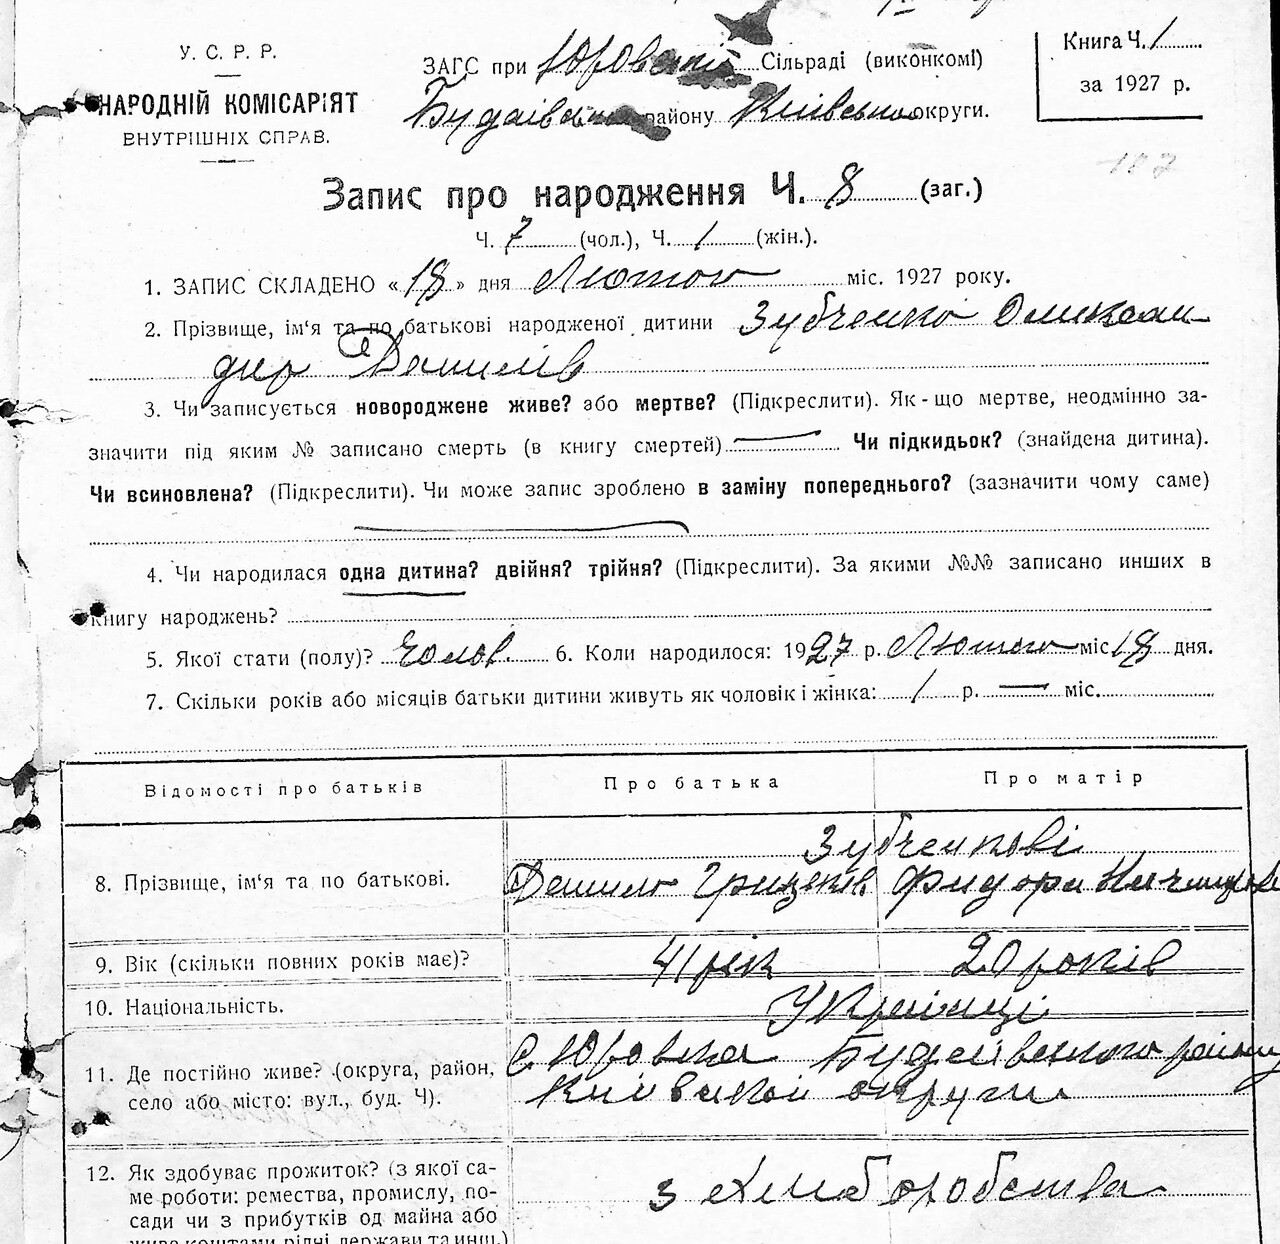 У. С. Р. Р.
НАРОДНІЙ КОМІСАРІЯТ
ВНУТРІШНІХ СПРАВ.
ЗАГС при Юровській Сільраді (виконкомі)
Будаївського району Київської округи.
Книга Ч. 1
за 1927 р.
187
Запис про народження Ч. 8 (заг.)
Ч. 7 (чол.), Ч. 1 (жін.).
1. ЗАПИС СКЛАДЕНО «18» дня Лютого міс. 1927 року.
2. Прізвище, ім‘я та по батькові народженої дитини Зубченко Олексан
дир Данилів
3. Чи записується новороджене живе? або мертве? (Підкреслити). Як-що мертве, неодмінно за-
значити під яким № записано смерть (в книгу смертей) — Чи підкидьок? (знайдена дитина).
Чи всиновлена? (Підкреслити). Чи може запис зроблено в заміну попереднього? (зазначити чому саме)
4. Чи народилася одна дитина? двійня? трійня? (Підкреслити). За якими №№ записано инших в
книгу народжень?
5. Якої стати (полу)? Чолов. 6. Коли народилося: 1927 р. Лютого міс 18 дня.
7. Скільки років або місяців батьки дитини живуть як чоловік і жінка: 1 р. — міс.
Відомості про батьків Про батька Про матір
Зубченкові
8. Прізвище, ім‘я та по батькові. Данило Грицьків Фидора
9. Вік (скільки повних років має)? 41 рік 20 років
10. Національність. Українці
11. Де постійно живе? (округа, район, С Юровка Будаївського району
село або місто: вул., буд. Ч). Київської округи
12. Як здобуває прожиток? (з якої са-
ме роботи: ремества, промислу, по- з хліборобства
сади чи з прибутків од майна або
живе коштами рідні держави та инш.)